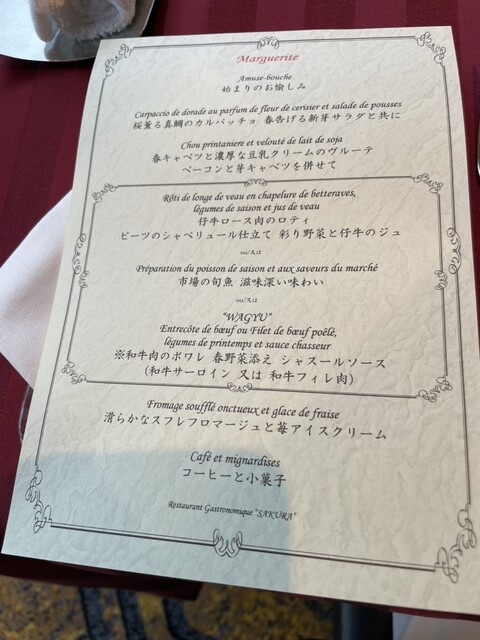 Marguerite
Amuse-bouche
始まりのお愉しみ
Carpaccio de dorade au parfum de fleur de cerisier et salade de pousses
桜薫る真鯛のカルパッチョ 春告げる新芽サラダと共に
Chou printaniere et velouté de lait de soja
春キャベツと濃厚な豆乳クリームのヴルーテ
ベーコンと芽キャベツを併せて
Rôti de longe de veau en chapelure de betteraves,
légumes de saison et jus de veau
仔牛ロース肉のロティ
ビーツのシャペリュール仕立て 彩り野菜と仔牛のジュ
ou/又は
Préparation du poisson de saison et aux saveurs du marché
市場の旬魚 滋味深い味わい
ou/又は
"WAGYU"
Entrecôte de bœuf ou Filet de bœuf poêlé,
légumes de printemps et sauce chasseur
※和牛肉のポワレ 春野菜添え シャスールソース
(和牛サーロイン 又は 和牛フィレ肉)
Fromage soufflé onctueux et glace de fraise
滑らかなスフレフロマージュと苺アイスクリーム
Café et mignardises
コーヒーと小菓子
Restaurant Gastronomique "SAKURA"